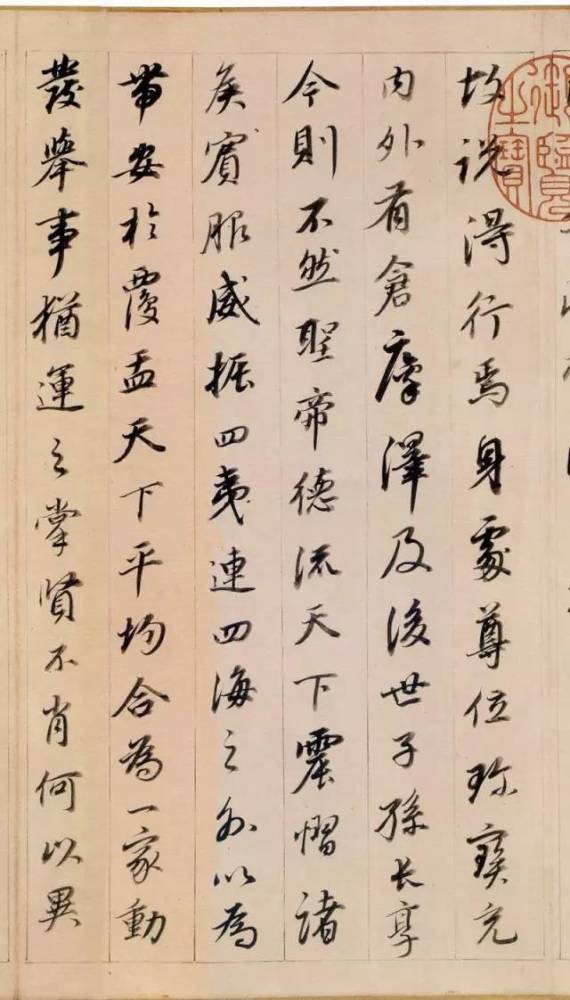 故說得行焉身處尊位珍寶充
内外有倉廪澤及後世子孫長享
今則不然聖帝德流天下震慴諸
侯賓服威振四夷連四海之外以為
帶安於覆盂天下平均合為一家動
發舉事猶運之掌賢不肖何以異
御覽之寶